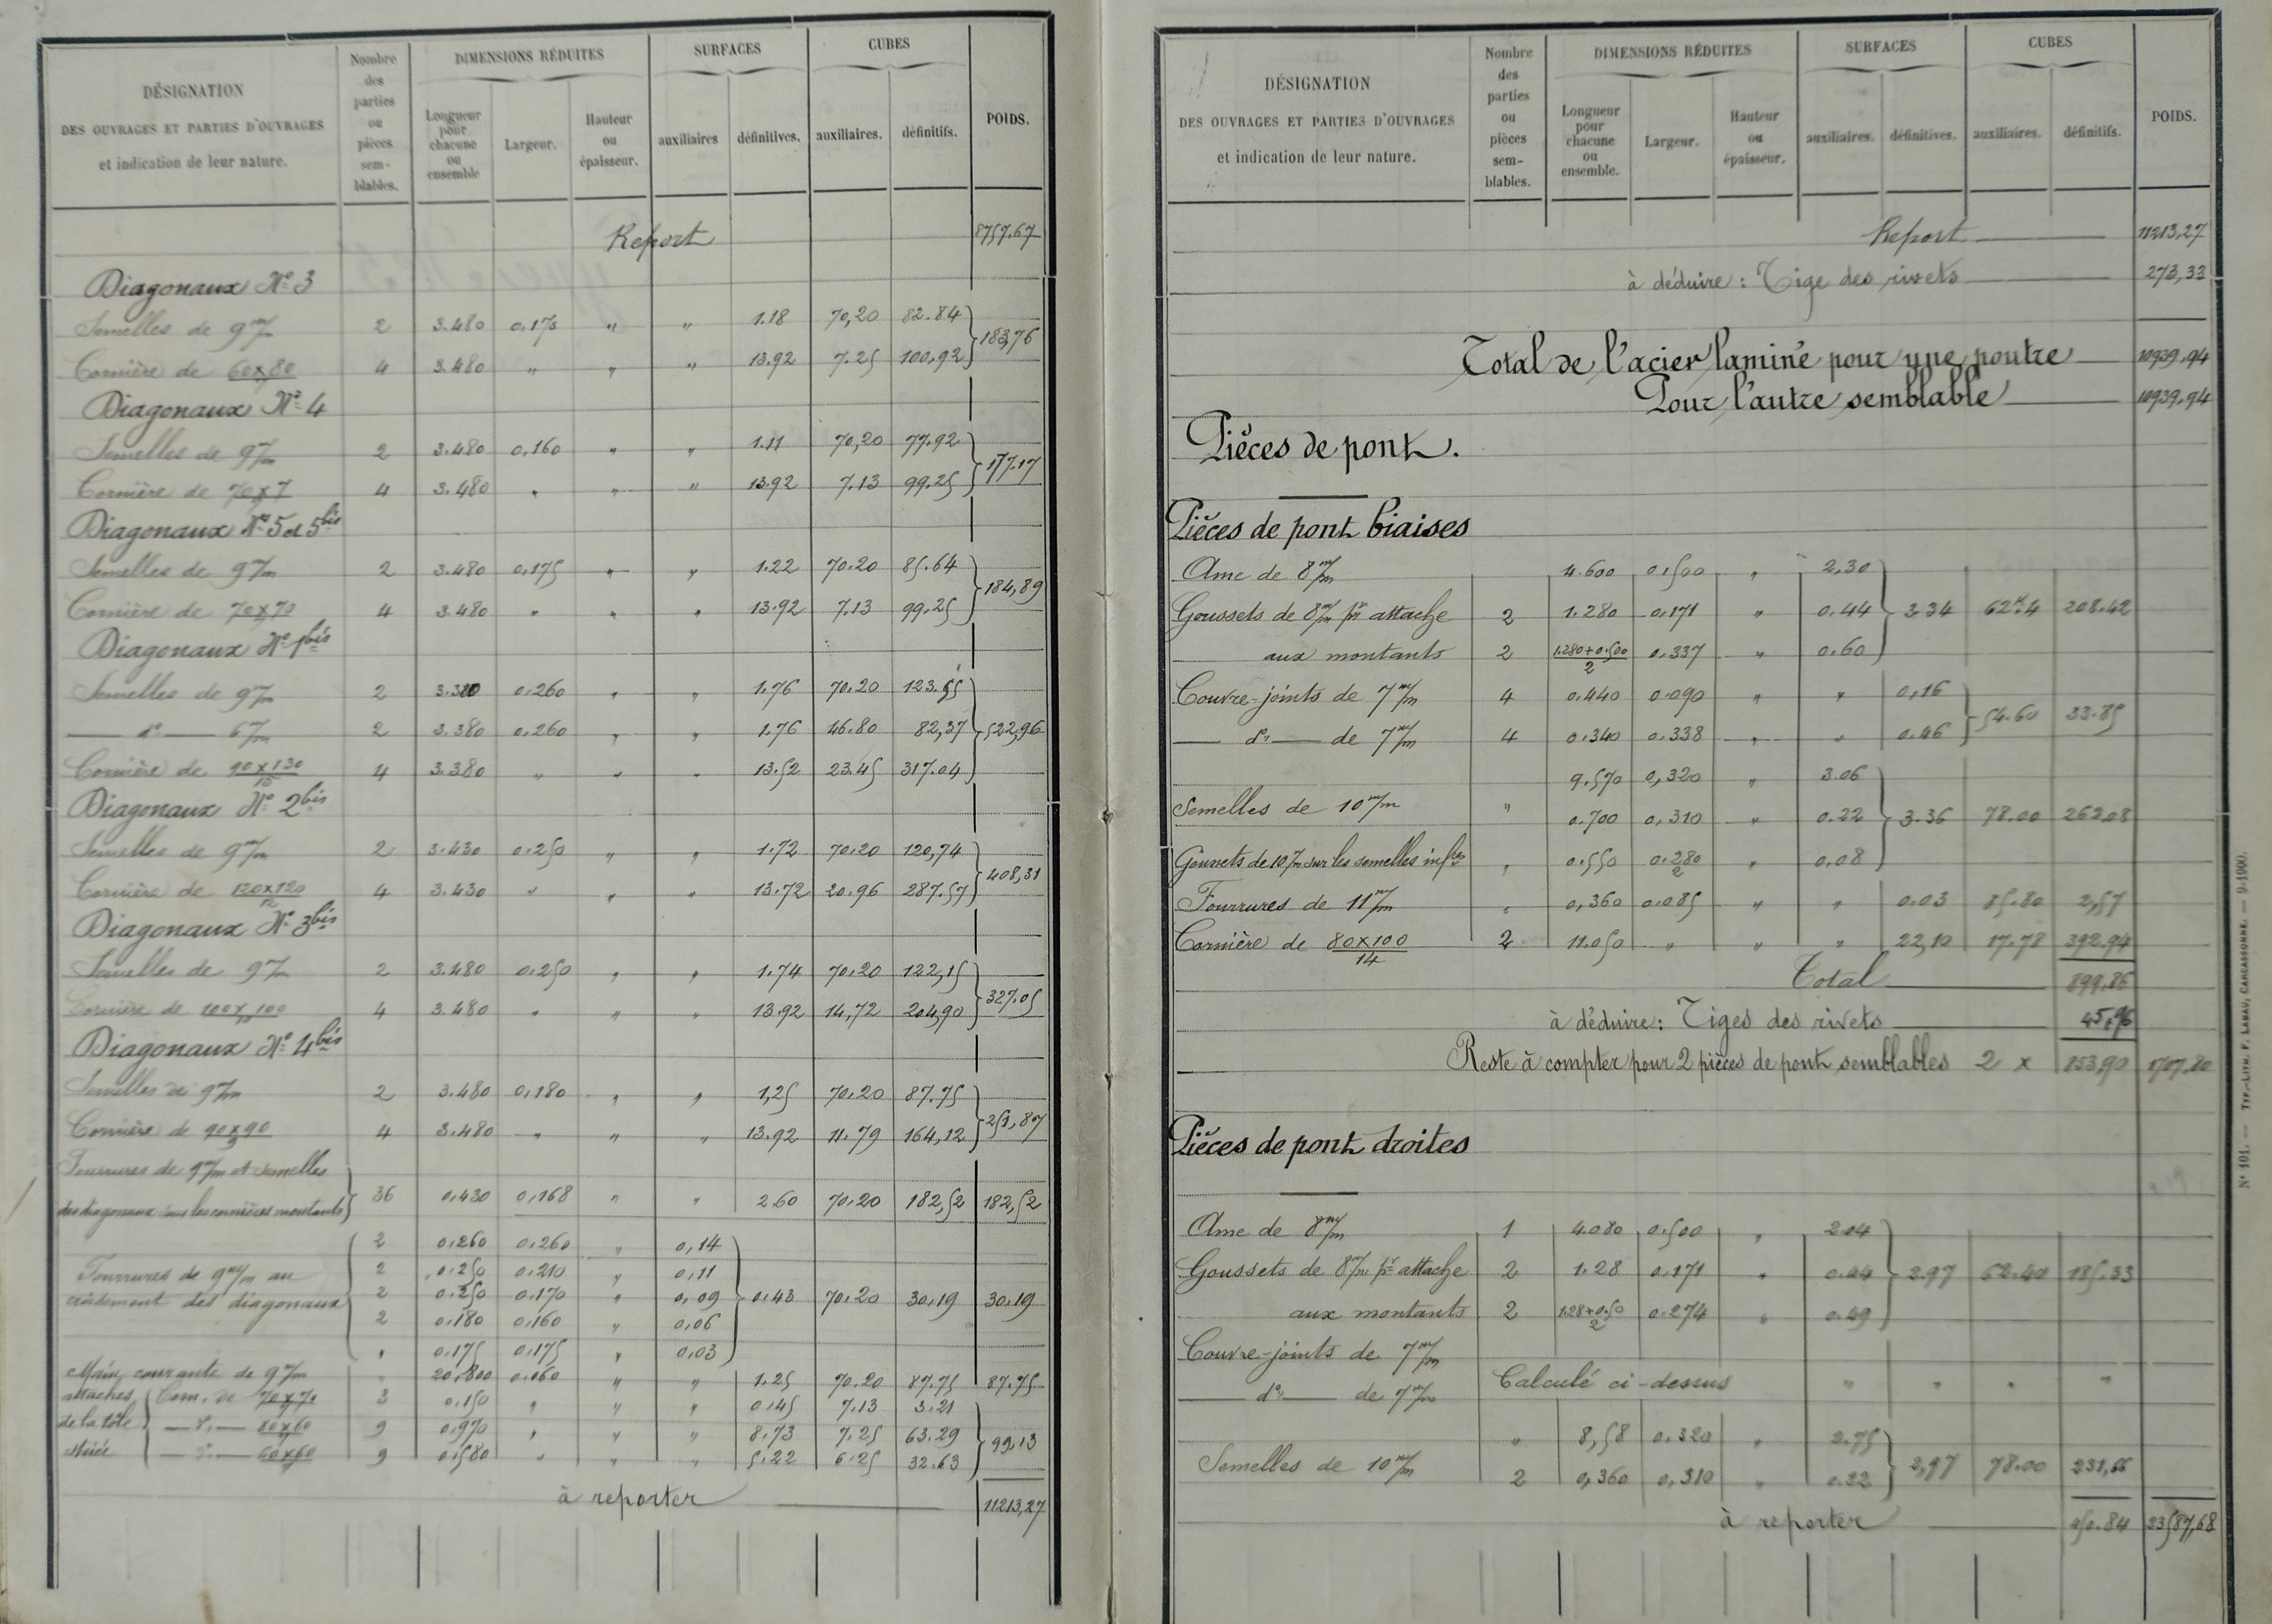 DÉSIGNATION
DES OUVRAGES ET PARTIES D'OUVRAGES
et indication de leur nature.
Nombre des parties ou pièces sem-blables.
DIMENSIONS RÉDUITES
Longueur pour chacune ou ensemble
Largeur.
Hauteur ou épaisseur.
SURFACES
auxiliaires
définitives.
CUBES
auxiliaires.
définitifs.
POIDS.
Report 8757.67
Diagonaux Nº 3
Semelles de 9m/m 2 3.480 0.170 " " 1.18 70,20 82.84
183,76
Cornière de 60x80 4 3.480 " " " 13.92 7.25 100,92
Diagonaux Nº 4
Semelles de 9m/m 2 3.480 0,160 " " 1.11 70,20 77.92
177.17
Cornière de 70x7 4 3.480 " " " 13.92 7.13 99.25
Diagonaux Nos 5 et 5bis
Semelles de 9m/m 2 3.480 0,175 " " 1.22 70.20 85.64
184,89
Cornière de 70x70 4 3.480 " " " 13.92 7.13 99.25
Diagonaux Nº 1bis
Semelles de 9m/m 2 3.380 0.260 " " 1.76 70.20 123.55
— dº — 6m/m 2 3.380 0.260 " " 1.76 46.80 82,37 522,96
Cornière de 90x130 4 3.380 " " " 13.52 23.45 317.04
Diagonaux Nº 2bis
Semelles de 9m/m 2 3.430 0.250 " " 1.72 70.20 120,74
408,31
Cornière de 120x120/12 4 3.430 " " " 13.72 20.96 287.57
Diagonaux Nº 3bis
Semelles de 9m/m 2 3.480 0.250 " " 1.74 70.20 122,15
327.05
Cornière de 100x100 4 3.480 " " " 13.92 14,72 204,90
Diagonaux Nº 4bis
Semelles de 9m/m 2 3.480 0,180 " " 1,25 70.20 87.75
251,87
Cornière de 90x90/9 4 3.480 " " " 13.92 11.79 164,12
Fourrures de 9m/m et semelles
des diagonaux sous les cornières montants 36 0.430 0,168 " " 2.60 70.20 182,52 182,52
2 0.260 0.260 " 0,14
Fourrures de 9m/m au 2 0.250 0.210 " 0,11
croisement des diagonaux 2 0.250 0.170 " 0,09 0.43 70.20 30.19 30.19
2 0.180 0.160 " 0,06
" 0.175 0.175 " 0,03
Main courante de 9m/m " 20.800 0.060 " " 1.25 70.20 87.75 87.75
attaches Corn. de 70x70 3 0.150 " " " 0.45 7.13 3.21
de la tôle — dº — 80x60 9 0.970 " " " 8.73 7.25 63.29 99.13
striée — dº — 60x60 9 0.580 " " " 5.22 6.25 32.63
à reporter 11213,27
DÉSIGNATION
DES OUVRAGES ET PARTIES D'OUVRAGES
et indication de leur nature.
Nombre des parties ou pièces sem-blables.
DIMENSIONS RÉDUITES
Longueur pour chacune ou ensemble.
Largeur.
Hauteur ou épaisseur.
SURFACES
auxiliaires.
définitives.
CUBES
auxiliaires.
définitifs.
POIDS.
Report 11213,27
à déduire : Tige des rivets 273,33
Total de l'acier laminé pour une poutre 10939.94
Pour l'autre semblable 10939.94
Pièces de pont.
Pièces de pont biaises
Ame de 8m/m 4.600 0.500 " 2,30
Goussets de 8m/m pr attache 2 1.280 0.171 " 0.44 3.34 62k.4 208.42
aux montants 2 1.280+0.500/2 0.337 " 0.60
Couvre-joints de 7m/m 4 0.440 0.090 " " 0,16
54.60 33.85
— dº — de 7m/m 4 0.340 0.338 " " 0.46
9.570 0,320 " 3.06
Semelles de 10m/m " 0.700 0,310 " 0.22 3.36 78.00 262,08
Goussets de 10m/m sur les semelles infres " 0.550 0.280/2 " 0,08
Fourrures de 11m/m " 0,360 0.085 " " 0.03 85.80 2,57
Cornière de 80x100/14 2 11.050 " " " 22,10 17.78 392.94
Total 899.86
à déduire: Tiges des rivets 45,96
Reste à compter pour 2 pièces de pont semblables 2 x 853,90 1707.80
Pièces de pont droites
Ame de 8m/m 1 4.080 0.500 " 2.04
Goussets de 8m/m pr attache 2 1.28 0.171 " 0.44 2.97 62.40 185.33
aux montants 2 1.28+0.50/2 0.274 " 0.49
Couvre-joints de 7m/m
Calculé ci-dessus " " " "
— dº — de 7m/m
" 8,58 0.320 " 2.75
Semelles de 10m/m 2,97 78.00 231,66
2 0,360 0,310 " 0.22
à reporter 23587,68
Nº 101. — TYP.-LITH. F. LABAU, CARCASSONNE. — 9-1900.